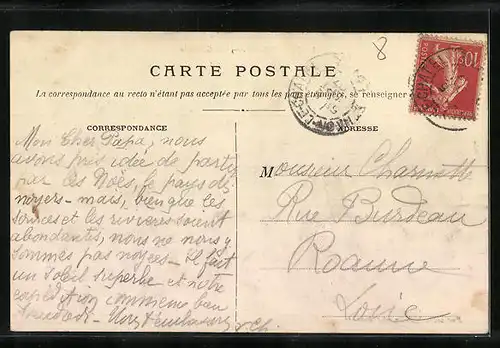 8
10c POSTES
CARTE POSTALE
La correspondance au recto n'étant pas acceptée par tous les pays étrangers, se renseigner
CORRESPONDANCE
ADRESSE
Mon Cher Papa, nous
avons pris idée de partir
par les Noës, le pays des
noyers - mais, bien que les
sources et les rivières soient
abondantes, nous ne nous y
sommes pas noyés - Il fait
un soleil superbe et notre
expédition commence bien
Nous t'embrassons
Monsieur
Rue Burdeau
Roanne
Loire